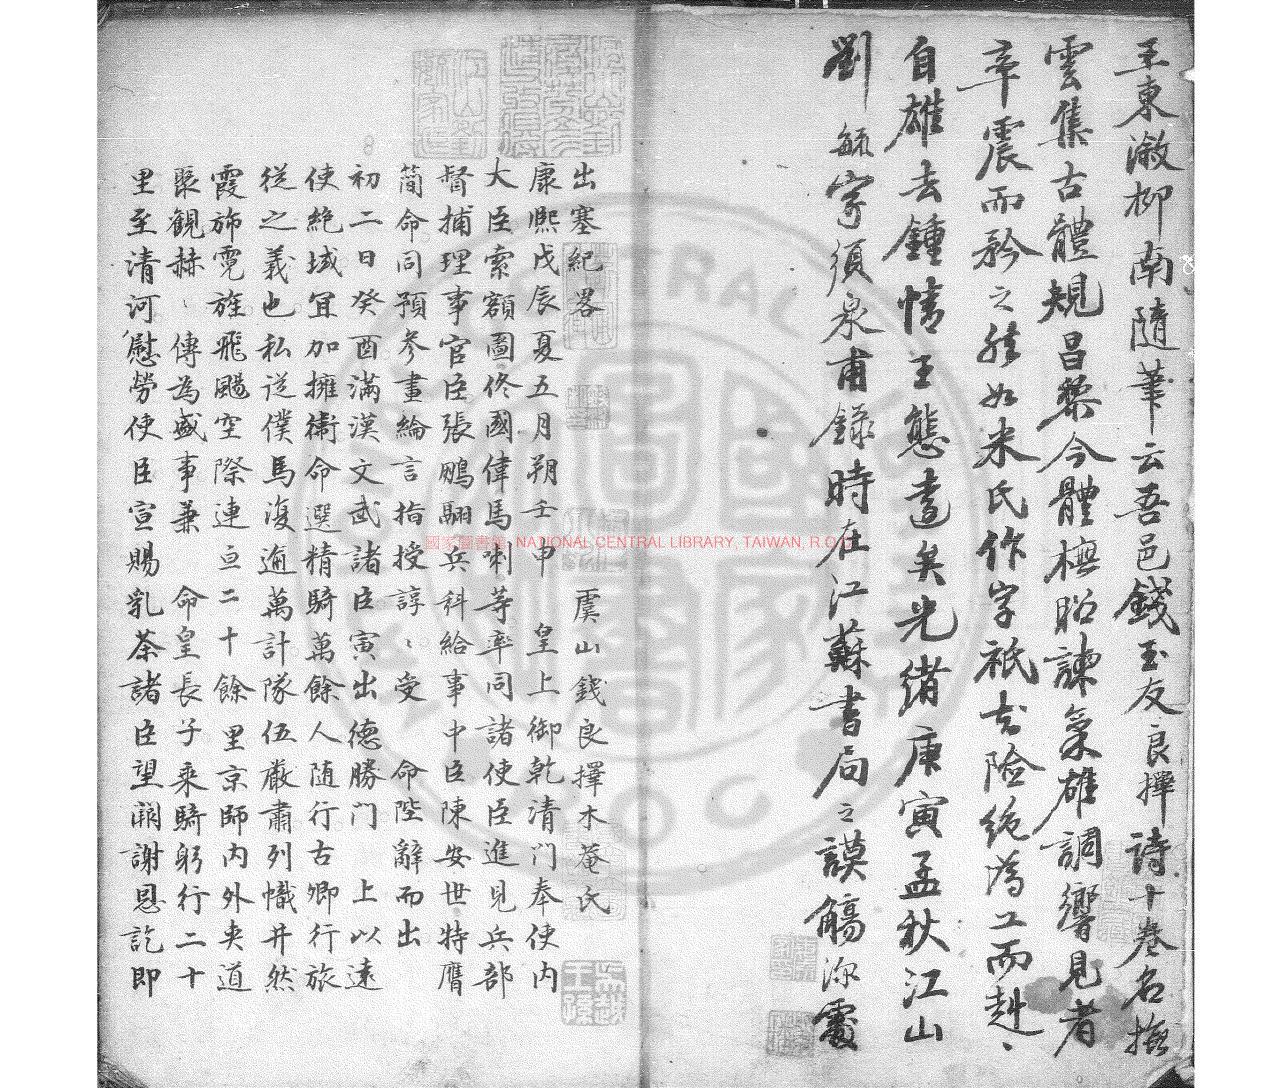 王東漵柳南隨筆云吾邑錢玉友良擇詩十卷名撫
雲集古體規昌黎今體橅昭諫氣雄調響見者
卒震而矜之然如米氏作字祇去險絶為工而赳、
自雄去鍾情王態遠矣光緒庚寅孟秋江山
劉毓家須泉甫錄時在江蘇書局之謨觴深處
出塞紀畧 虞山錢良擇木菴氏
康熙戊辰夏五月朔壬申 皇上御乾清門奉使內
大臣索額圖佟國偉馬喇等率同諸使臣進見兵部
督捕理事官臣張鵬翮兵科給事中臣陳安世特膺
簡命同預參畫綸言指授諄、受 命陛辭而出
初二日癸酉滿漢文武諸臣寅出德勝門 上以遠
使絶域宜加擁衛命選精騎萬餘人随行古卿行旅
從之義也私從僕馬復逾萬計隊伍嚴肅列幟井然
霞斾霓旌飛颺空際連亘二十餘里京師内外夹道
聚觀赫、傳為盛事兼 命皇長子乘騎躬行二十
里至清河慰勞使臣宣賜乳茶諸臣望闕謝恩訖即
國家圖書館 NATIONAL CENTRAL LIBRARY, TAIWAN, R.O.C